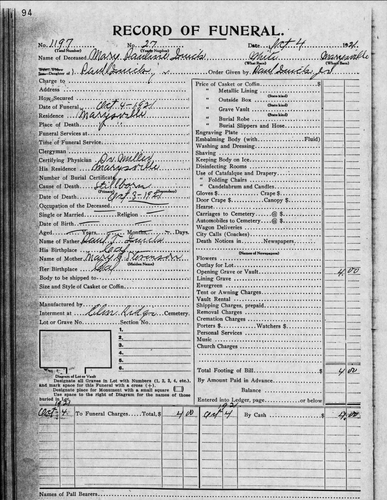 94
RECORD OF FUNERAL.
No. 197 No. 27 Date Oct 4 1921
(Total Number) (Yearly Number)
Name of Deceased Mary White Marysville
(What Race) (Where Born)
Daughter of) Paul Order Given by Paul
Charge to
Address
How Secured
Date of Funeral Oct 4-1921
Residence Marysville
Place of Death
Funeral Services at
Time of Funeral Service
Clergyman
Certifying Physician Dr. Miller
His Residence Marysville
Number of Burial Certificate
Cause of Death Stillborn
(Primary) (Secondary)
Date of Death Oct 3-1921
Occupation of the Deceased
Single or Married Religion
Date of Birth
Aged Years, Months, Days.
Name of Father Paul
His Birthplace
Name of Mother Mary
(Maiden Name)
Her Birthplace
Body to be shipped to
Size and Style of Casket or Coffin
Manufactured by
Interment at Cemetery.
Lot or Grave No. Section No.
1
2
3
4
5
6
Diagram of Lot or Vault
Designate all Graves in Lot with Numbers (1, 2, 3, 4, etc.),
and mark space for this Funeral with a cross (+).
Designate place for Monument with a small square
Use space to the right of Diagram for the names of those
buried in Lot.
Price of Casket or Coffin $
" Metallic Lining
(State kind)
" Outside Box
(State kind)
" Grave Vault
(State kind)
" Burial Robe
(State kind)
" Burial Slippers and Hose
Engraving Plate
Embalming Body (with Fluid)
Washing and Dressing
Shaving
Keeping Body on Ice
Disinfecting Rooms
Use of Catafalque and Drapery
" Folding Chairs
" Candelabrum and Candles
Gloves $ Crape $
Door Crape $ Canopy $
Hearse
Carriages to Cemetery @ $
Automobiles to Cemetery @ $
Wagon Deliveries
City Calls (Coaches)
Death Notices in Newspapers
(Names of Newspapers)
Flowers
Outlay for Lot
Opening Grave or Vault 4 00
Lining Grave
Evergreen
Tent or Awning Charges
Vault Rental
Shipping Charges, prepaid
Removal Charges
Cremation Charges
Porters $ Watchers $
Personal Services
Music
Church Charges
Total Footing of Bill $ 4 00
By Amount Paid in Advance
Balance
Entered into Ledger, page or below
1921 1921
Oct 4 To Funeral Charges Total, $ 4 00 Oct 4 By Cash $ 4 00
Names of Pall Bearers